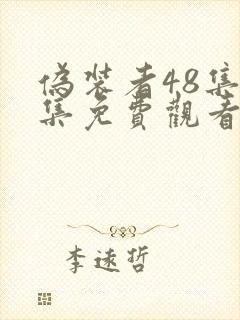 偽装者48集
集免費觀看
李遠哲